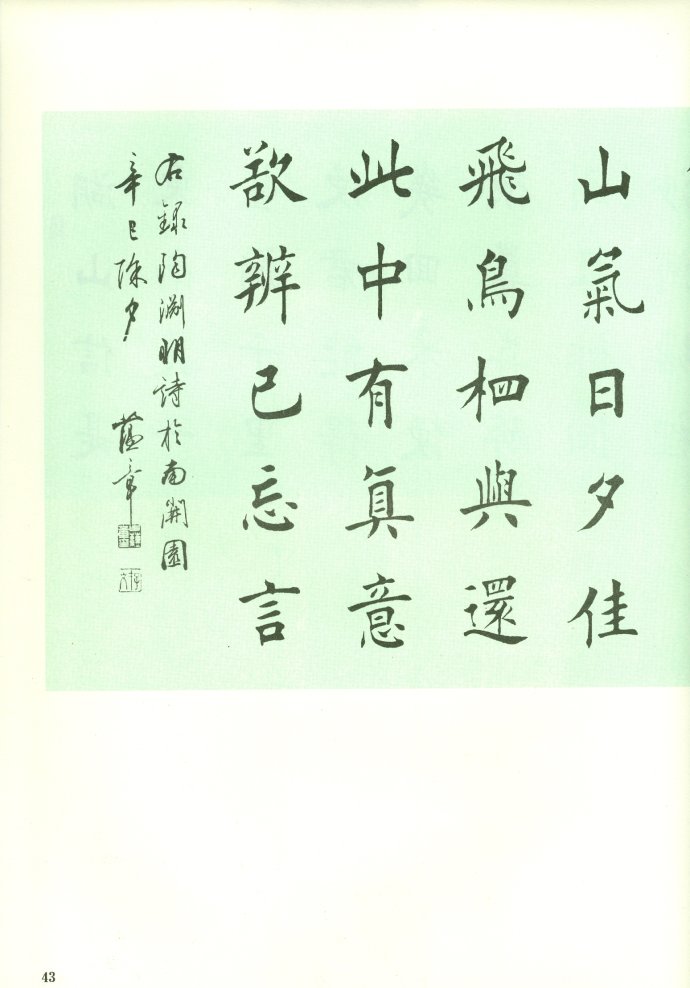 山氣日夕佳
飛鳥相與還
此中有真意
欲辨已忘言
右録陶渊明詩於南開園
辛巳除夕 章
43